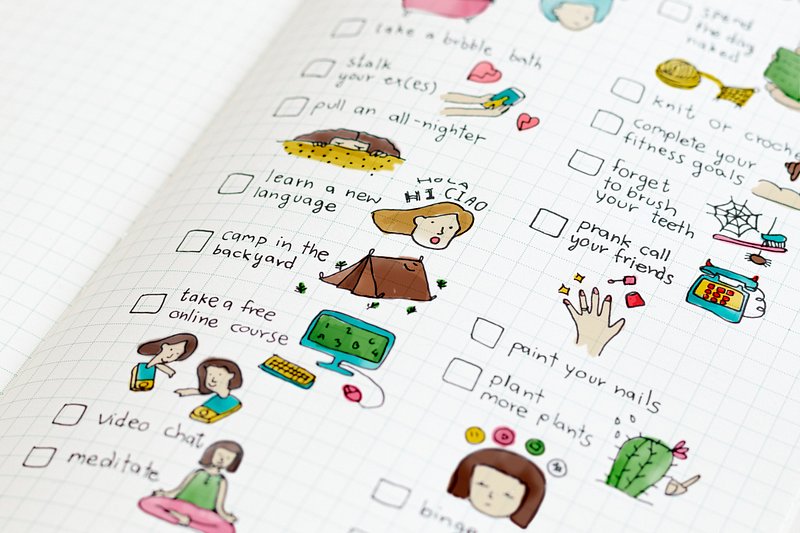 take a bubble bath
stalk
your ex(es)
pull an all-nighter
learn a new
language
HOLA
HI CIAO
camp in the
backyard
take a free
online course
video chat
meditate
spend
the day
naked
knit or croche
complete your
fitness goals
forget
to brush
your teeth
prank call
your friends
paint your nails
plant
more plants
binge